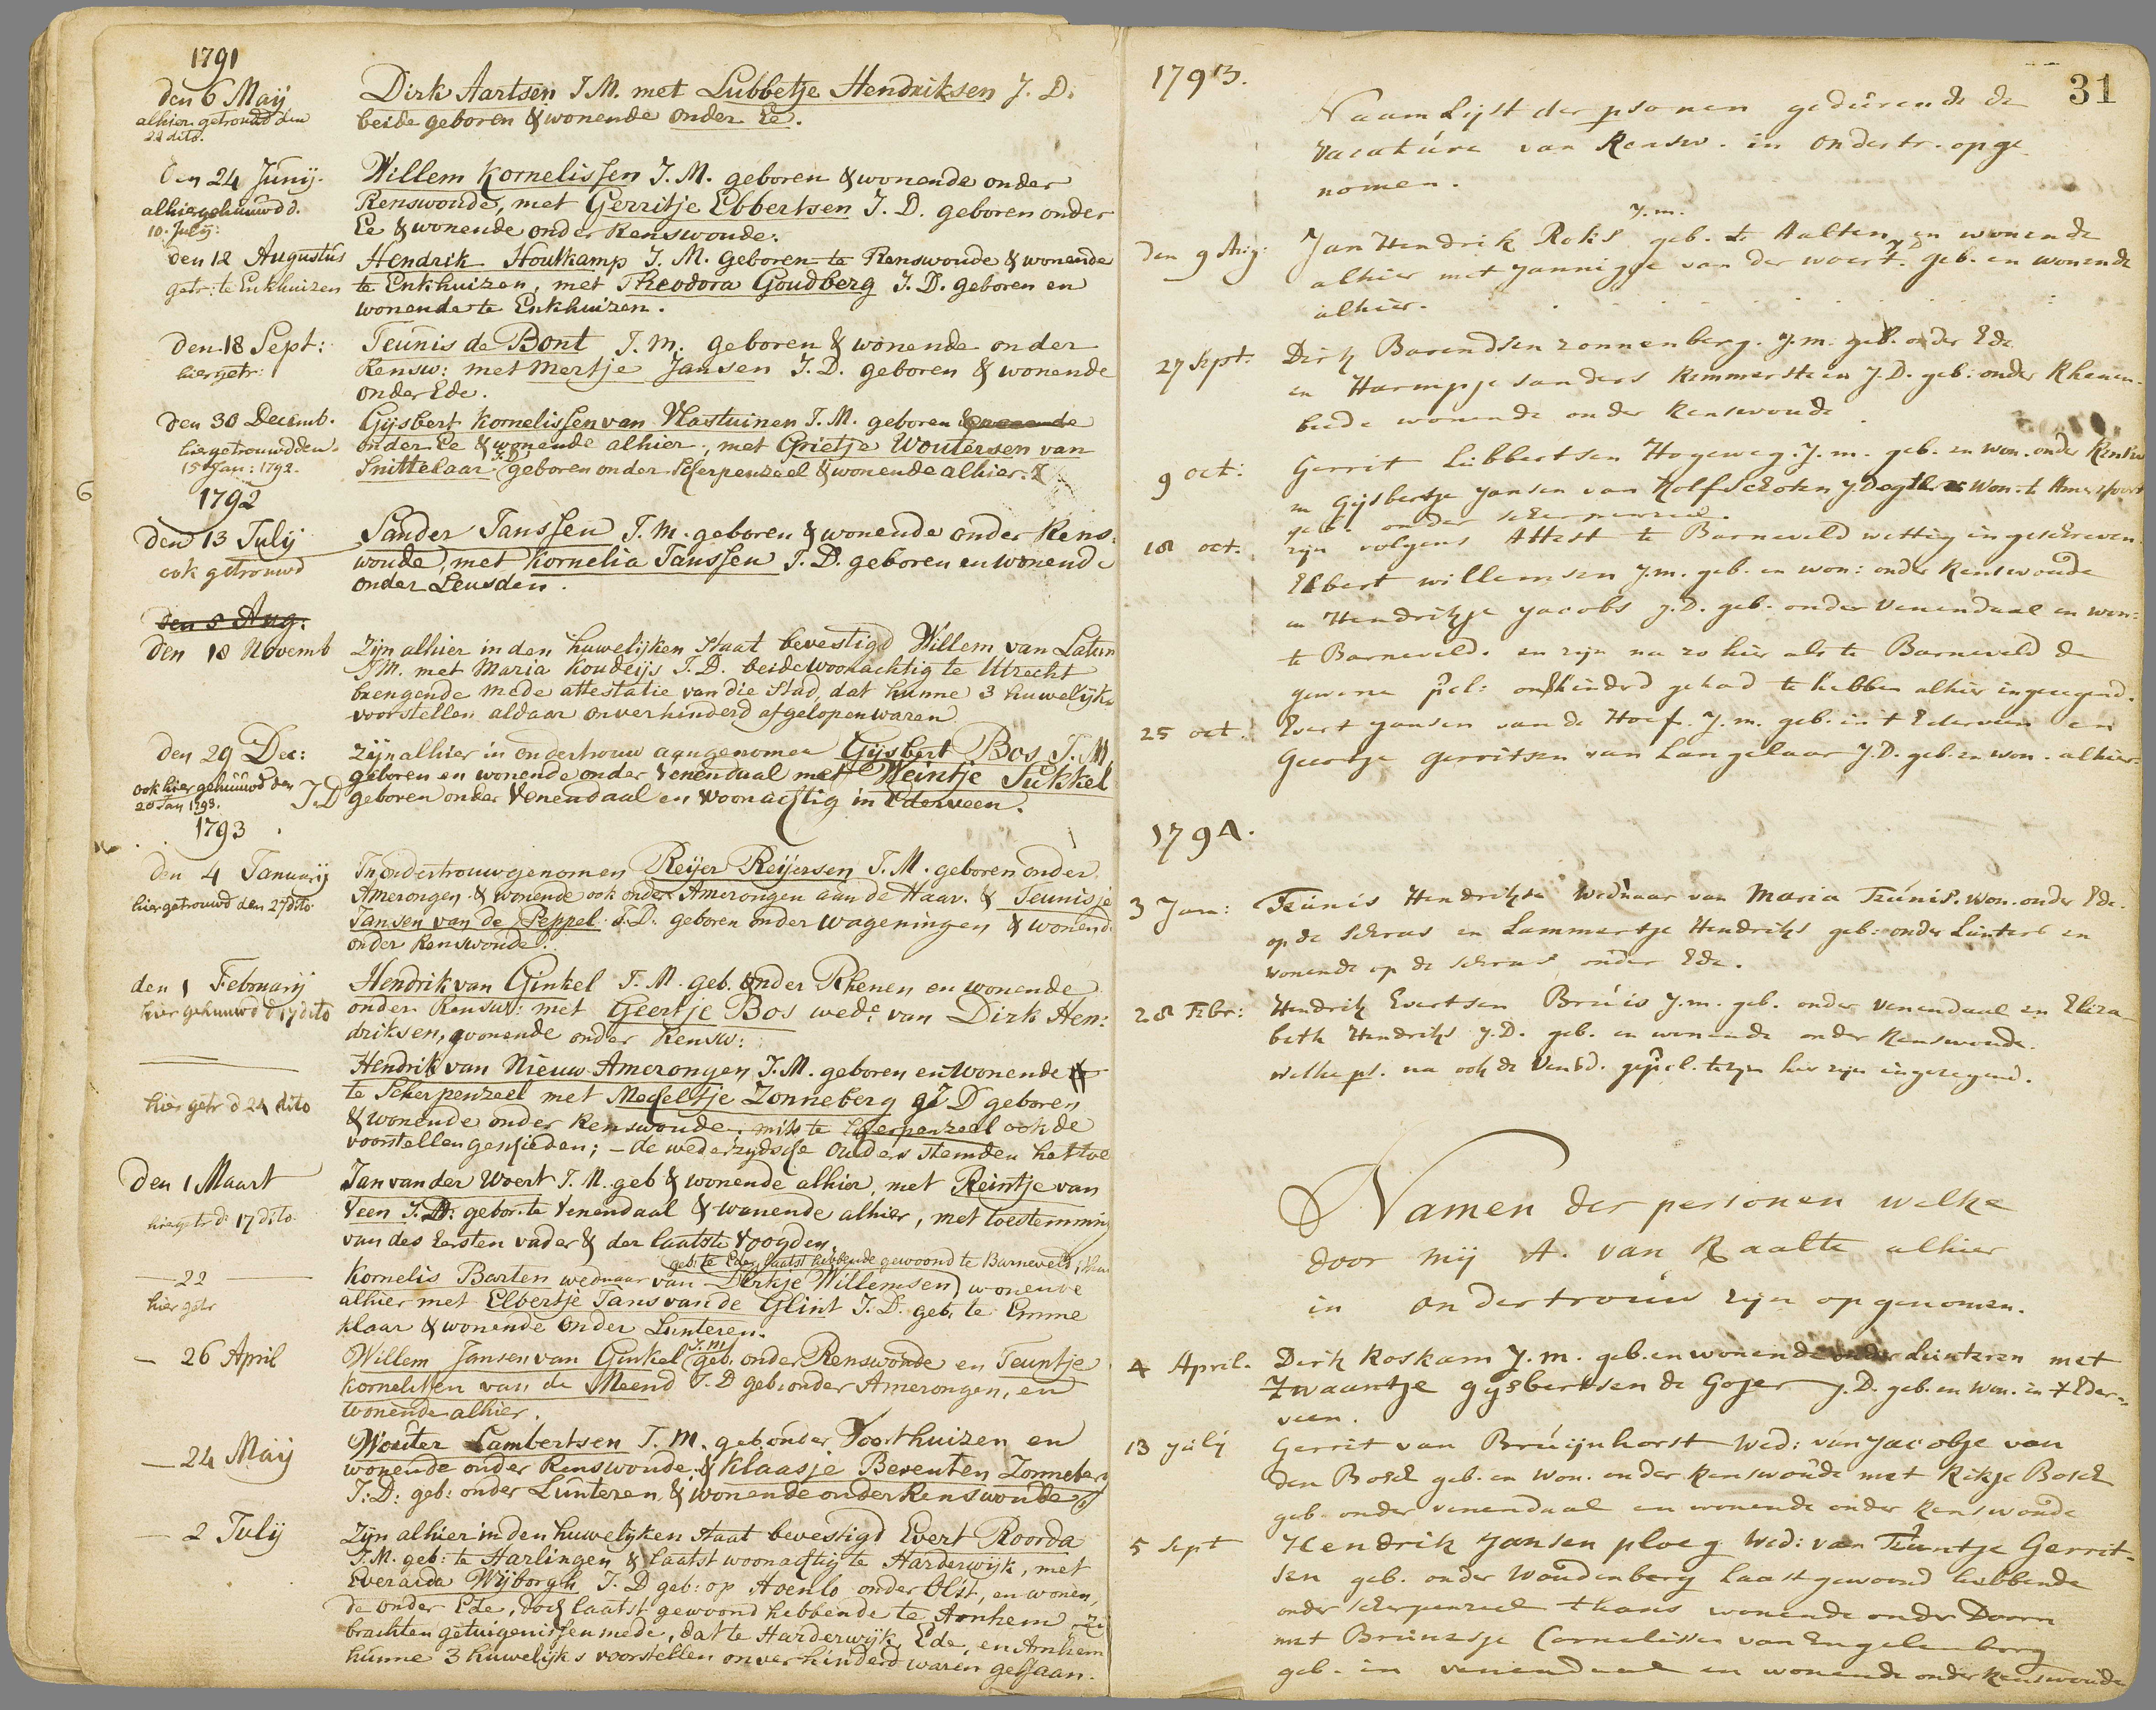 1791
den 6 Maij
alhier getrouwd den
22 dito.
Dirk Aartsen J.M. met Lubbetje Hendriksen J. D.
beide geboren & wonende onder Ee.
den 24 Junij.
alhier gehuuwd d.
10. July:
Willem Kornelissen J. M. geboren & wonende onder
Renswoude, met Gerritje Ebbertsen J. D. geboren onder
Ee & wonende onder Renswoude.
den 12 Augustus
getr: te Enkhuizen
Hendrik Houtkamp J. M. geboren te Renswoude & wonende
te Enkhuizen, met Theodora Goudberg J. D. geboren en
wonende te Enkhuizen.
den 18 Sept:
hier getr:
Teunis de Bont J. m. geboren & wonende onder
Rensw: met Mertje Jansen J. D. geboren & wonende
onder Ede.
den 30 Decemb.
hier getrouwd den
15 Jan: 1792.
Gijsbert Kornelissen van Vlastuinen J. M. geboren & wonende
onder Ee & wonende alhier, met Grietje Woutersen van
Snittelaar J.D. geboren onder Scherpenzeel & wonende alhier.
1792
den 13 Julij
ook getrouwd
Sander Janssen J. M. geboren & wonende onder Rens:
woude, met Kornelia Janssen J. D. geboren en wonende
onder Leusden.
den 5 Aug:
den 18 Novemb
Zijn alhier in den huwelijken Staat bevestigd Willem van Latum
J M. met Maria Koudeijs J. D. beide woonachtig te Utrecht
brengende mede attestatie van die Stad, dat hunne 3 huwelijks
voorstellen aldaar onverhinderd afgelopen waren
den 29 Dec:
ook hier gehuuwd den
20 Jan 1793.
Zijn alhier in ondertrouw aangenomen Gijsbert Bos J. M
geboren en wonende onder Venendaal met Weintje Sukkel
J.D geboren onder Venendaal en woonachtig in Ederveen.
1793
den 4 Januarij
hier getrouwd den 27 dito
In ondertrouw genomen Reijer Reijersen J. M. geboren onder
Amerongen & wonende ook onder Amerongen aan de Haar. & Teunisje
Jansen van de Peppel J.D. geboren onder Wageningen & wonende
onder Renswoude.
den 1 Februarij
hier gehuuwd d 17 dito
Hendrik van Ginkel J. M. geb. onder Rhenen en wonende
onder Rensw: met Geertje Bos wede van Dirk Hen:
driksen, wonende onder Rensw:
hier getr d 24 dito
Hendrik van Nieuw Amerongen J. M. geboren en wonende
te Scherpenzeel met Mechteltje Zonneberg J D geboren
& wonende onder Renswoude, mits te Scherpenzeel ook de
voorstellen geschieden; - de wederzydsche Ouders stemden het toe
den 1 Maart
hier getr d 17 dito.
Jan van der Woert J. M. geb & wonende alhier, met Reintje van
Veen J. D. gebor. te Venendaal & wonende alhier, met toestemming
van des Eersten vader & der laatste Voogden.
22
hier getr
geb: te Ede, laatst hebbende gewoond te Barneveld, thans
Kornelis Barten weduaar van Dirkje Willemsen wonende
alhier met Elbertje Jans van de Glint J. D. geb. te Emme
klaar & wonende onder Lunteren.
26 April
Willem Jansen van Ginkel J.m geb. onder Renswoude en Teuntje
Kornelissen van de Meend J. D geb. onder Amerongen, en
wonende alhier.
24 Maij
Wouter Lambertsen J. M. geb. onder Voorthuizen en
wonende onder Renswoude & Klaasje Berenten Zonneberg
J: D: geb: onder Lunteren & wonende onder Renswoude
2 Julij
Zijn alhier in den huwelyken staat bevestigd Evert Roorda
J. M. geb: te Harlingen & laatst woonachtig te Harderwijk, met
Everarda Wijborgh J. D geb: op Hoenlo onder Olst, en wonen,
de onder Ede, doch laatst gewoond hebbende te Arnhem
brachten getuigenissen mede, dat te Harderwijk, Ede, en Arnhem
hunne 3 huwelijks voorstellen onverhinderd waren gegaan.
31
1793.
Naam Lijst der psonen gedurende de
Vacature van Rensw. in ondertr. opge
nomen.
den 9 Aug:
Jan Hendrik Roks J.m. geb. te Aalten en wonende
alhier met Jannigje van der Woert. J D geb. en wonende
alhier.
27 Sept:
Dirk Barendsen Zonnenberg. J.m. geb. onder Ede
en Harmpje Sanders Remmerstein J.D. geb: onder Rhenen
beide wonende onder Renswoude
9 oct:
Gerrit Lubbertsen Hogeweg. J.m. geb. en won. onder Rensw
en Gijsbertje Jansen van Kolfschoten J Dogter won. te Amersfoort
geb. onder Scherpenzeel.
18 oct:
zijn volgens Attest te Barneveld wettig ingeschreven
Elbert Willemsen J.m. geb. en won: onder Renswoude
en Hendrikje Jacobs J.D. geb. onder Venendaal en won:
te Barneveld. en zijn na zo hier als te Barneveld de
gewone pcl: onhinderd gehad te hebben alhier ingezegend.
25 oct.
Evert Jansen van de Hoef. J.m. geb. in 't Ederveen en
Geertje Gerritsen van Langelaar J.D. geb. en won. alhier
1794.
3 Jan:
Teunis Hendrikse Weduaar van Maria Teunis. won. onder Ede.
op de Schras en Lammertje Hendriks geb: onder Lunters en
wonende op de Schras onder Ede.
28 Febr:
Hendrik Evertsen Bruis J.m. geb. onder Venendaal en Eliza
beth Hendriks J.D. geb. en wonende onder Renswoude.
hier zijn ingezegend.
Namen der personen welke
door mij A. van Raalte alhier
in ondertrouw zijn opgenomen.
4 April.
Dirk Roskam J.m. geb. en wonende onder Lunteren met
Zwaantje Gysbertsen de Gojer J.D. geb. en won. in 't Eder-
veen.
13 July
Gerrit van Bruijnhorst Wed: van Jacobje van
den Bosch geb. en won. onder Renswoude met Rikje Bosch
geb. onder Venendaal en wonende onder Renswoude
5 Sept
Hendrik Jansen Ploeg Wed: van Teuntje Gerrit-
sen geb. onder Woudenberg Laast gewoond hebbende
onder Scherpenzeel thans wonende onder Doorn
met Bruinesje Cornelissen van Engelenberg
geb. in Venendaal en wonende onder Renswoude